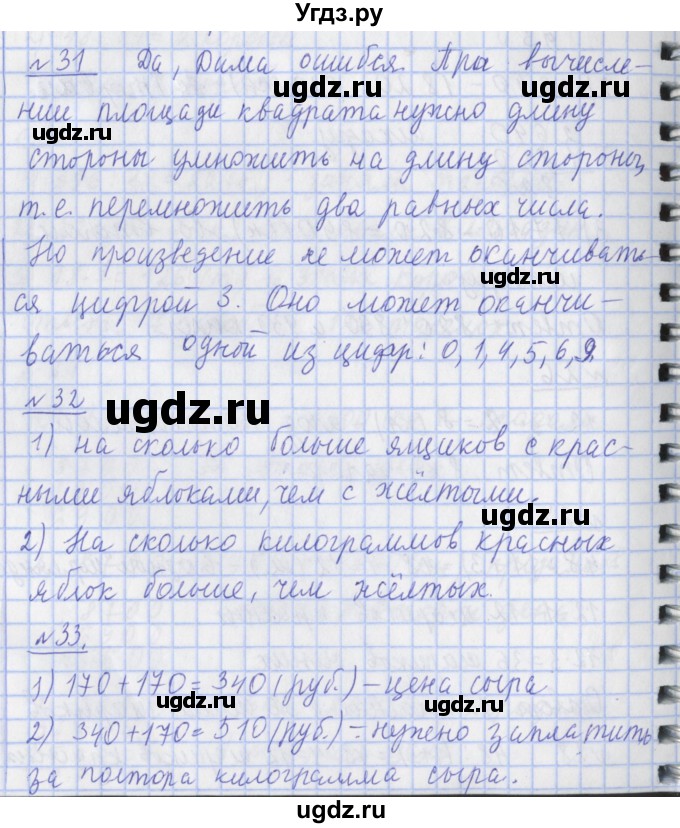 Угдз.ру
№31 Да, Дима ошибся. При вычисле-
нии площади квадрата нужно длину
ugdz.ru ugdz.ru
стороны умножить на длину стороны,
т.е. перемножить два равных числа.
ugdz.ru
Но произведение не может оканчивать-
ugdz.ru
ся цифрой 3. Оно может оканчи-
ваться одной из цифр: 0, 1, 4, 5, 6, 9.
№32
ugdz.ru
1) на сколько больше ящиков с крас-
ными яблоками, чем с жёлтыми.
ugdz.ru
2) На сколько килограммов красных
ugdz.ru
яблок больше, чем жёлтых.
№33.
ugdz.ru
1) 170+170=340 (руб.) – цена сыра
ugdz.ru
2) 340+170=510 (руб.) – нужно заплатить
ugdz.ru
за полтора килограмма сыра.
ugdz.ru